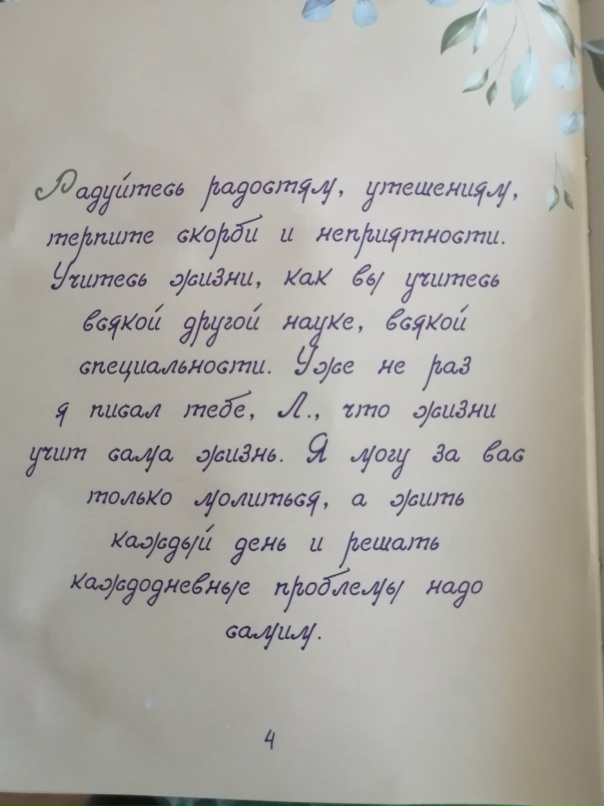 Радуйтесь радостям, утешениям,
терпите скорби и неприятности.
Учитесь жизни, как вы учитесь
всякой другой науке, всякой
специальности. Уже не раз
я писал тебе, Л., что жизни
учит сама жизнь. Я могу за вас
только молиться, а жить
каждый день и решать
каждодневные проблемы надо
самим.
4